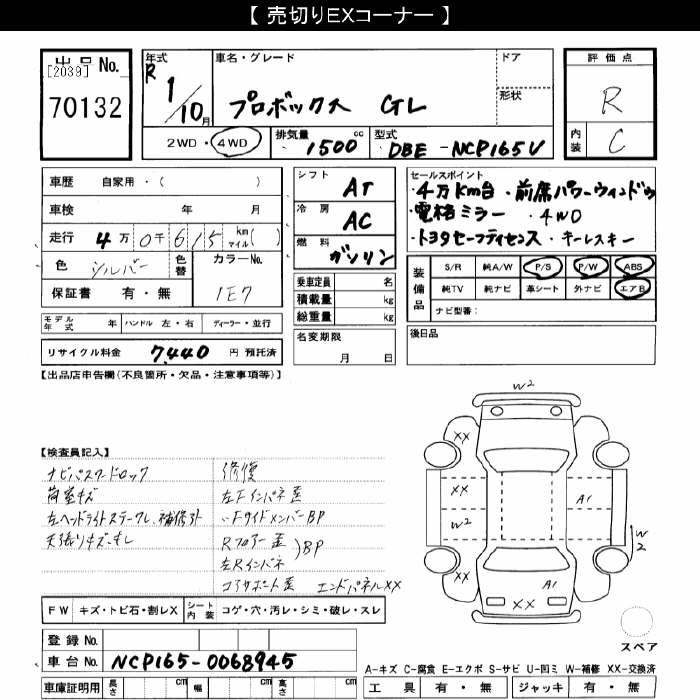 【 売切りEXコーナー 】
出品 No.
[2039]
70132
年式 R 1/10月
車名・グレード
プロボックス GL
ドア
形状
評価点
R
内装 C
2WD・4WD
排気量 1500 cc
型式 DBE-NCP165V
車歴 自家用・( )
車検 年 月
走行 4万0千615 km マイル( )
色 シルバー 色替
カラーNo. 1E7
保証書 有・無
シフト AT
冷房 AC
燃料 ガソリン
乗車定員 名
積載量 kg
総重量 kg
セールスポイント
・4万km台・前席パワーウィンドゥ
・電格ミラー・4WD
・トヨタセーフティセンス・キーレスキー
装備品
S/R 純A/W P/S P/W ABS
純TV 純ナビ 革シート 外ナビ エアB
ナビ型番:
モデル年式 年 ハンドル 左・右 ディーラー・並行
リサイクル料金 7,440 円 預託済
名変期限
月 日
後日品
【出品店申告欄(不良箇所・欠品・注意事項等)】
【検査員記入】
ナビパスワードロック
荷室キズ
左ヘッドライトステークレ、補修引
天張りキズ・ヨレ
修復
左Fインパネ歪
〃FサイドメンバーBP
Rフロアー歪
左Rインパネ
)BP
コアサポート歪 エンドパネルXX
W2
XX
XX
W2
A1
W2
A1
XX
スペア
FW キズ・トビ石・割レX シート内装 コゲ・穴・汚レ・シミ・破レ・スレ
登録 No.
車台 No. NCP165-0068945
車庫証明用 長さ cm 幅 cm 高さ cm
A-キズ C-腐食 E-エクボ S-サビ U-凹ミ W-補修 XX-交換済
工具 有・無 ジャッキ 有・無